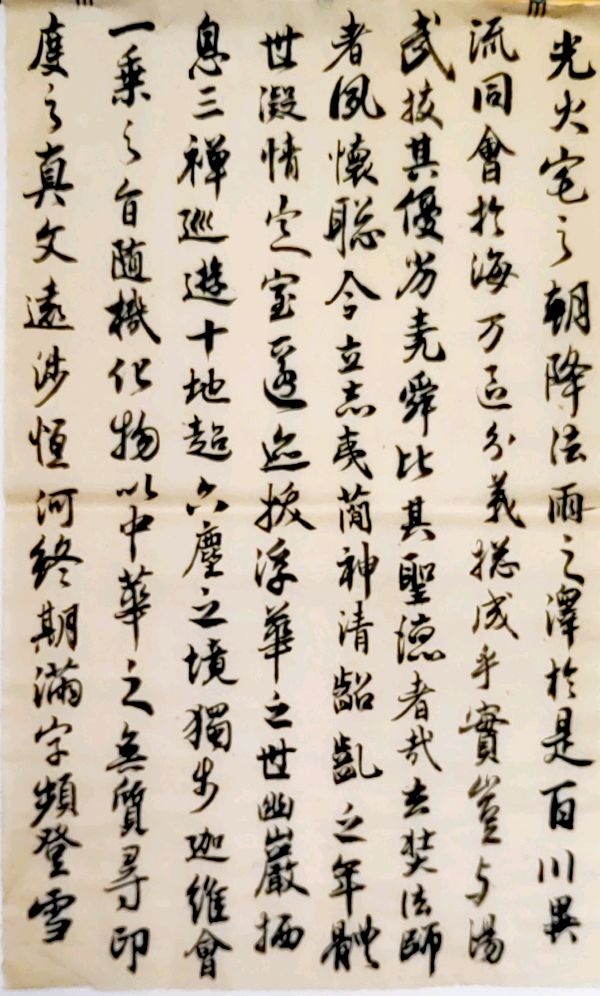 光火宅之朝降法雨之澤於是百川異
流同會於海万區分義揔成乎實豈与湯
武挍其優劣堯舜比其聖德者哉玄奘法師
者夙懷聡令立志夷蕳神清齠齔之年體
世凝情定室匿迹拔浮華之世幽巖栖
息三禪巡遊十地超六塵之境獨步迦維會
一乘之旨随機化物以中華之無質尋印
度之真文遠涉恒河終期滿字頻登雪